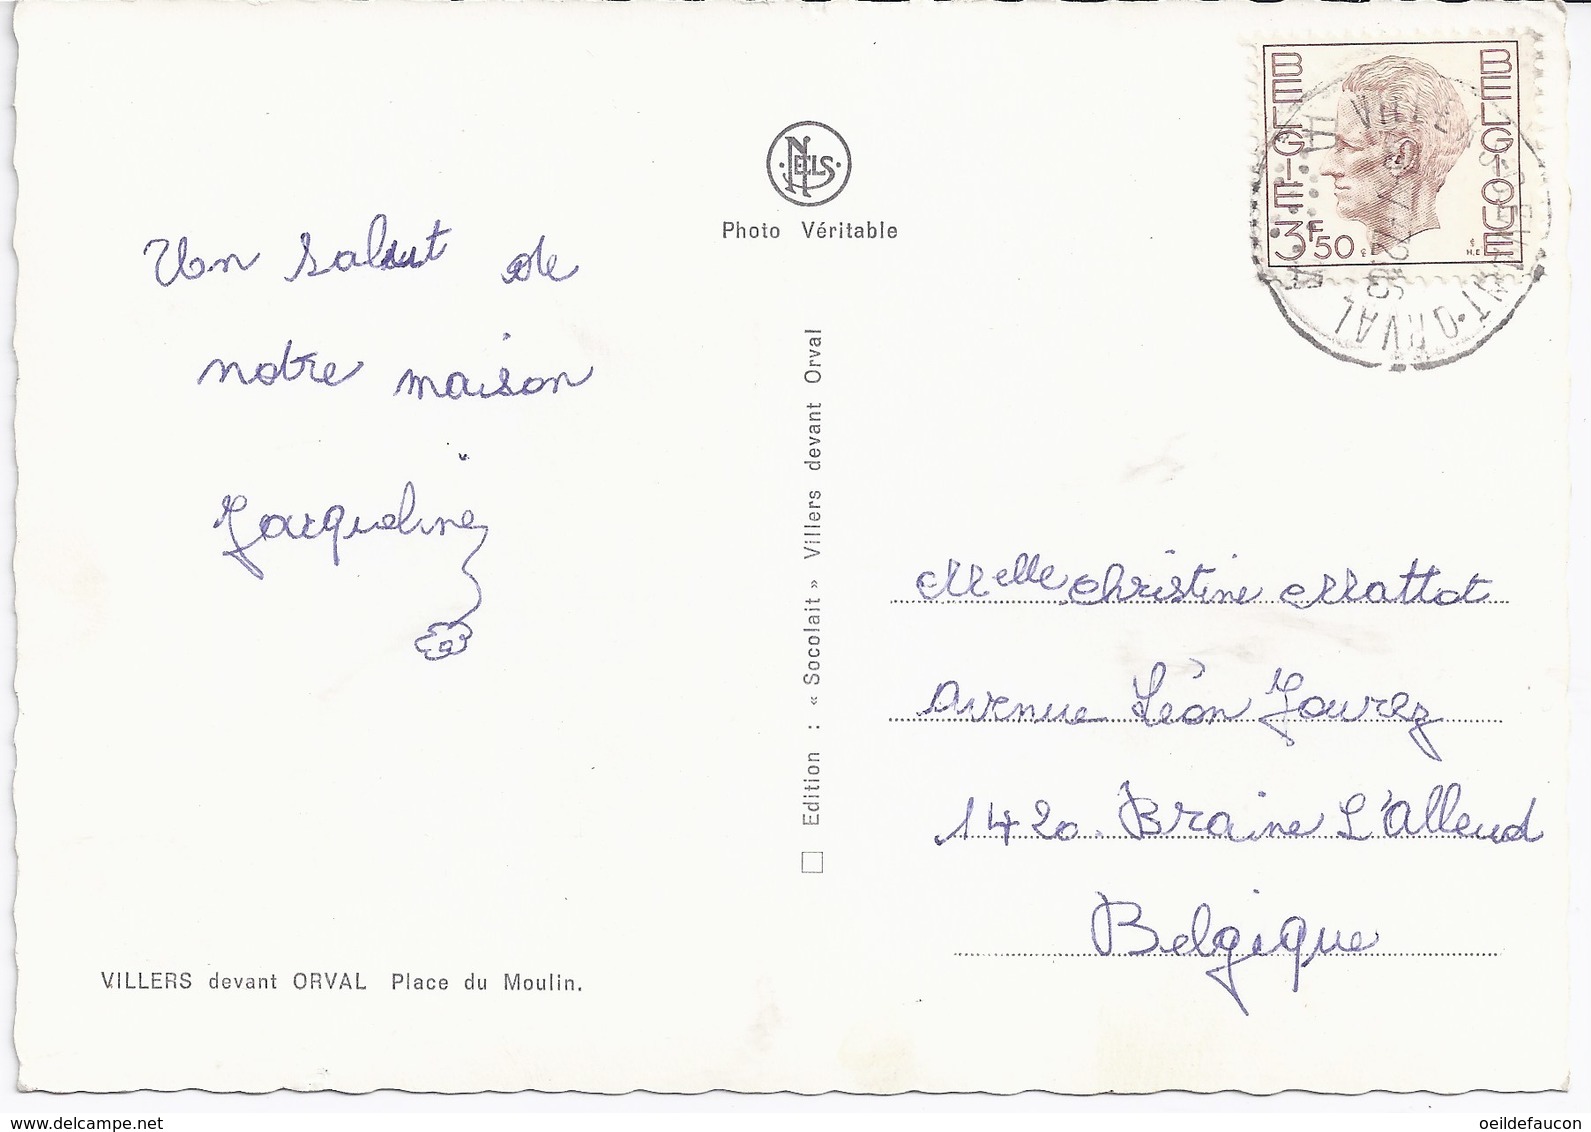 Un salut de
notre maison
Jacqueline
VILLERS devant ORVAL Place du Moulin.
NELS
Photo Véritable
Edition : « Socolait » Villers devant Orval
BELGIE BELGIQUE
3F50
Melle Christine Mattot
Avenue Léon Jourez
1420. Braine L'Alleud
Belgique
oeildefaucon